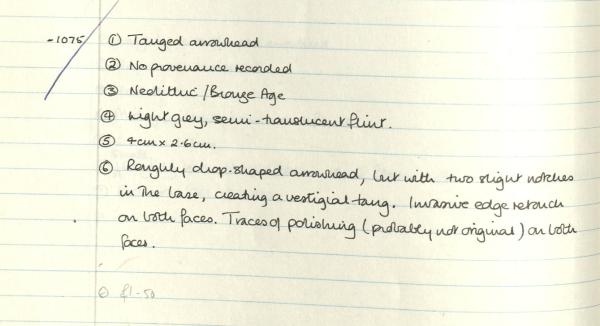 -1075 ① Tanged arrowhead
② No provenance recorded
③ Neolithic/Bronze Age
④ Light grey, semi-translucent flint.
⑤ 4cm x 2.6cm.
⑥ Roughly drop-shaped arrowhead, but with two slight notches
in the base, creating a vestigial tang. Invasive edge retouch
on both faces. Traces of polishing (probably not original) on both
faces.
⑥ £1-50